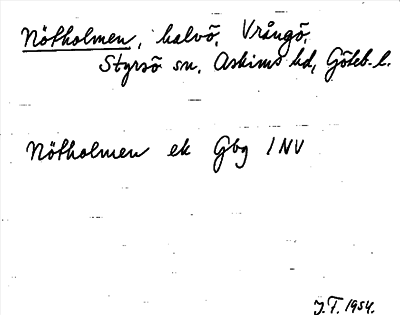 Nötholmen, halvö, Vrångö,
Styrsö sn, Askims hd, Göteb. l.
Nötholmen ek Gbg 1 NV
J.T. 1954.